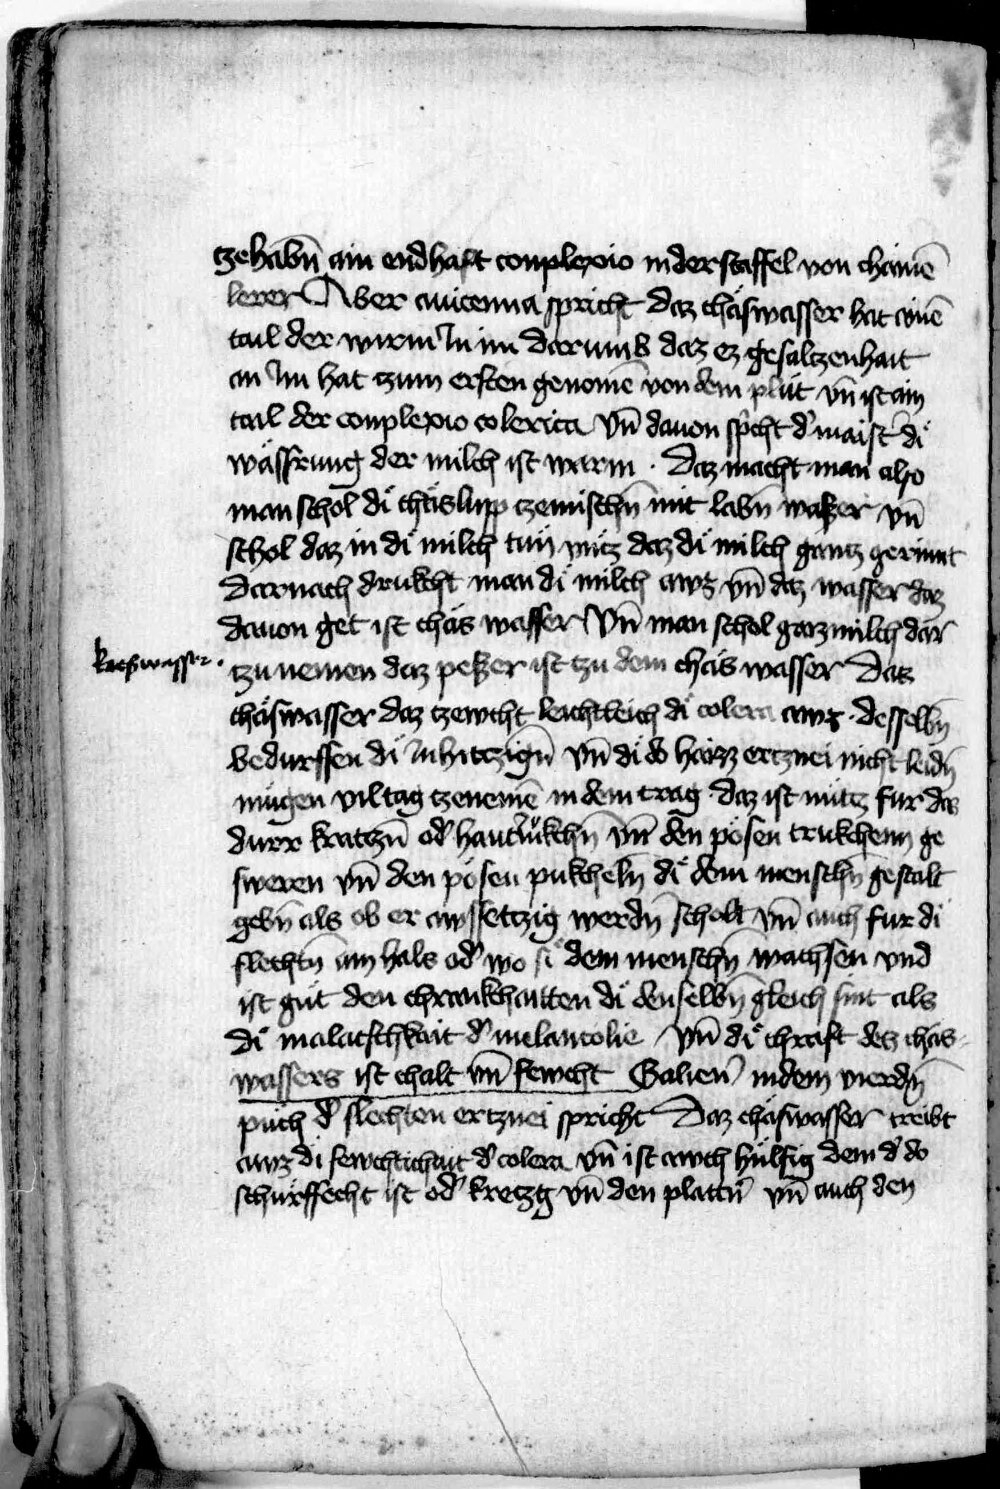 tzehabn̄ ain endhaft conplexio inder staffel von chainē
lerer Aber auicenna spricht daz chäswasser hat ainē
tail der wirm in im darumb daz ez gesaltzenhait
an im hat tzum ersten genomē von dem plüt vn̄ ist ain
tail der conplexio colerica Vn̄ dauon sp̄cht d' maist' di
wässrung der milch ist warm · Daz macht man also
man schol di chäslupp tzemischn̄ mit labn̄ wasser vn̄
schol daz in di milch tun vntz daz di milch gantz gerinnt
Darnach drukcht man di milch awz vn̄ daz wasser daz
dauon get ist chäs wasser Vn̄ man schol gaizmilch dar
kaeswasser ·
tzu nemen daz pesser ist tzu dem chäs wasser Daz
chäswasser daz tzewcht leichtleich di colera awz · desselbn̄
bedurffen di inhitzign̄ vn̄ di do haizz ertznei nicht leidn̄
mügen vil tag tzenemē in dem trag · daz ist nütz fur daz
durr kratzn̄ od' hautiukchn̄ vn̄ den pösen trukchenn ge
sweren vn̄ den pösen pukcheln̄ di dem menschn̄ gestalt
gebn̄ als ob er awssetzig werdn̄ scholt vn̄ auch fur di
flechtn̄ am hals od' wo si dem menschn̄ wachsen vnd
ist güt den chrankchaitten di denselbn̄ gleich sint als
di malatschkait d' melancolie Vn̄ di chraft dez chäs
wassers ist chalt vn̄ fewcht Galien' indem vierdn̄
puch d' slechten ertznei spricht Daz chäswasser treibt
awz di fewchtichait d' colera vn̄ ist awch hülfig dem d' do
schürffecht ist od' kretzg vn̄ den plattn̄ vn̄ auch den